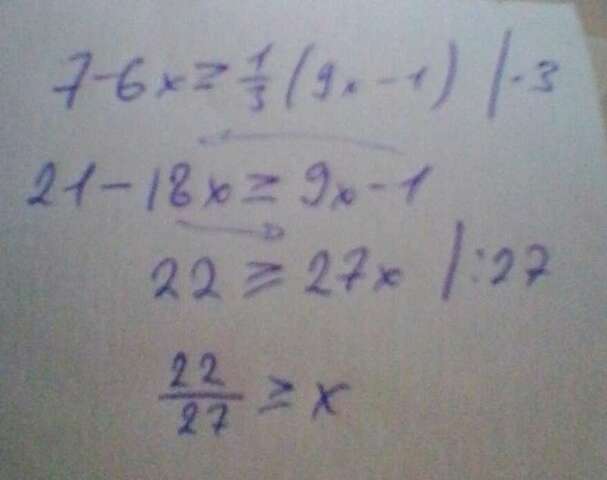 7-6x≥1/3(9x-1) |·3
21-18x≥9x-1
22≥27x |:27
22/27≥x